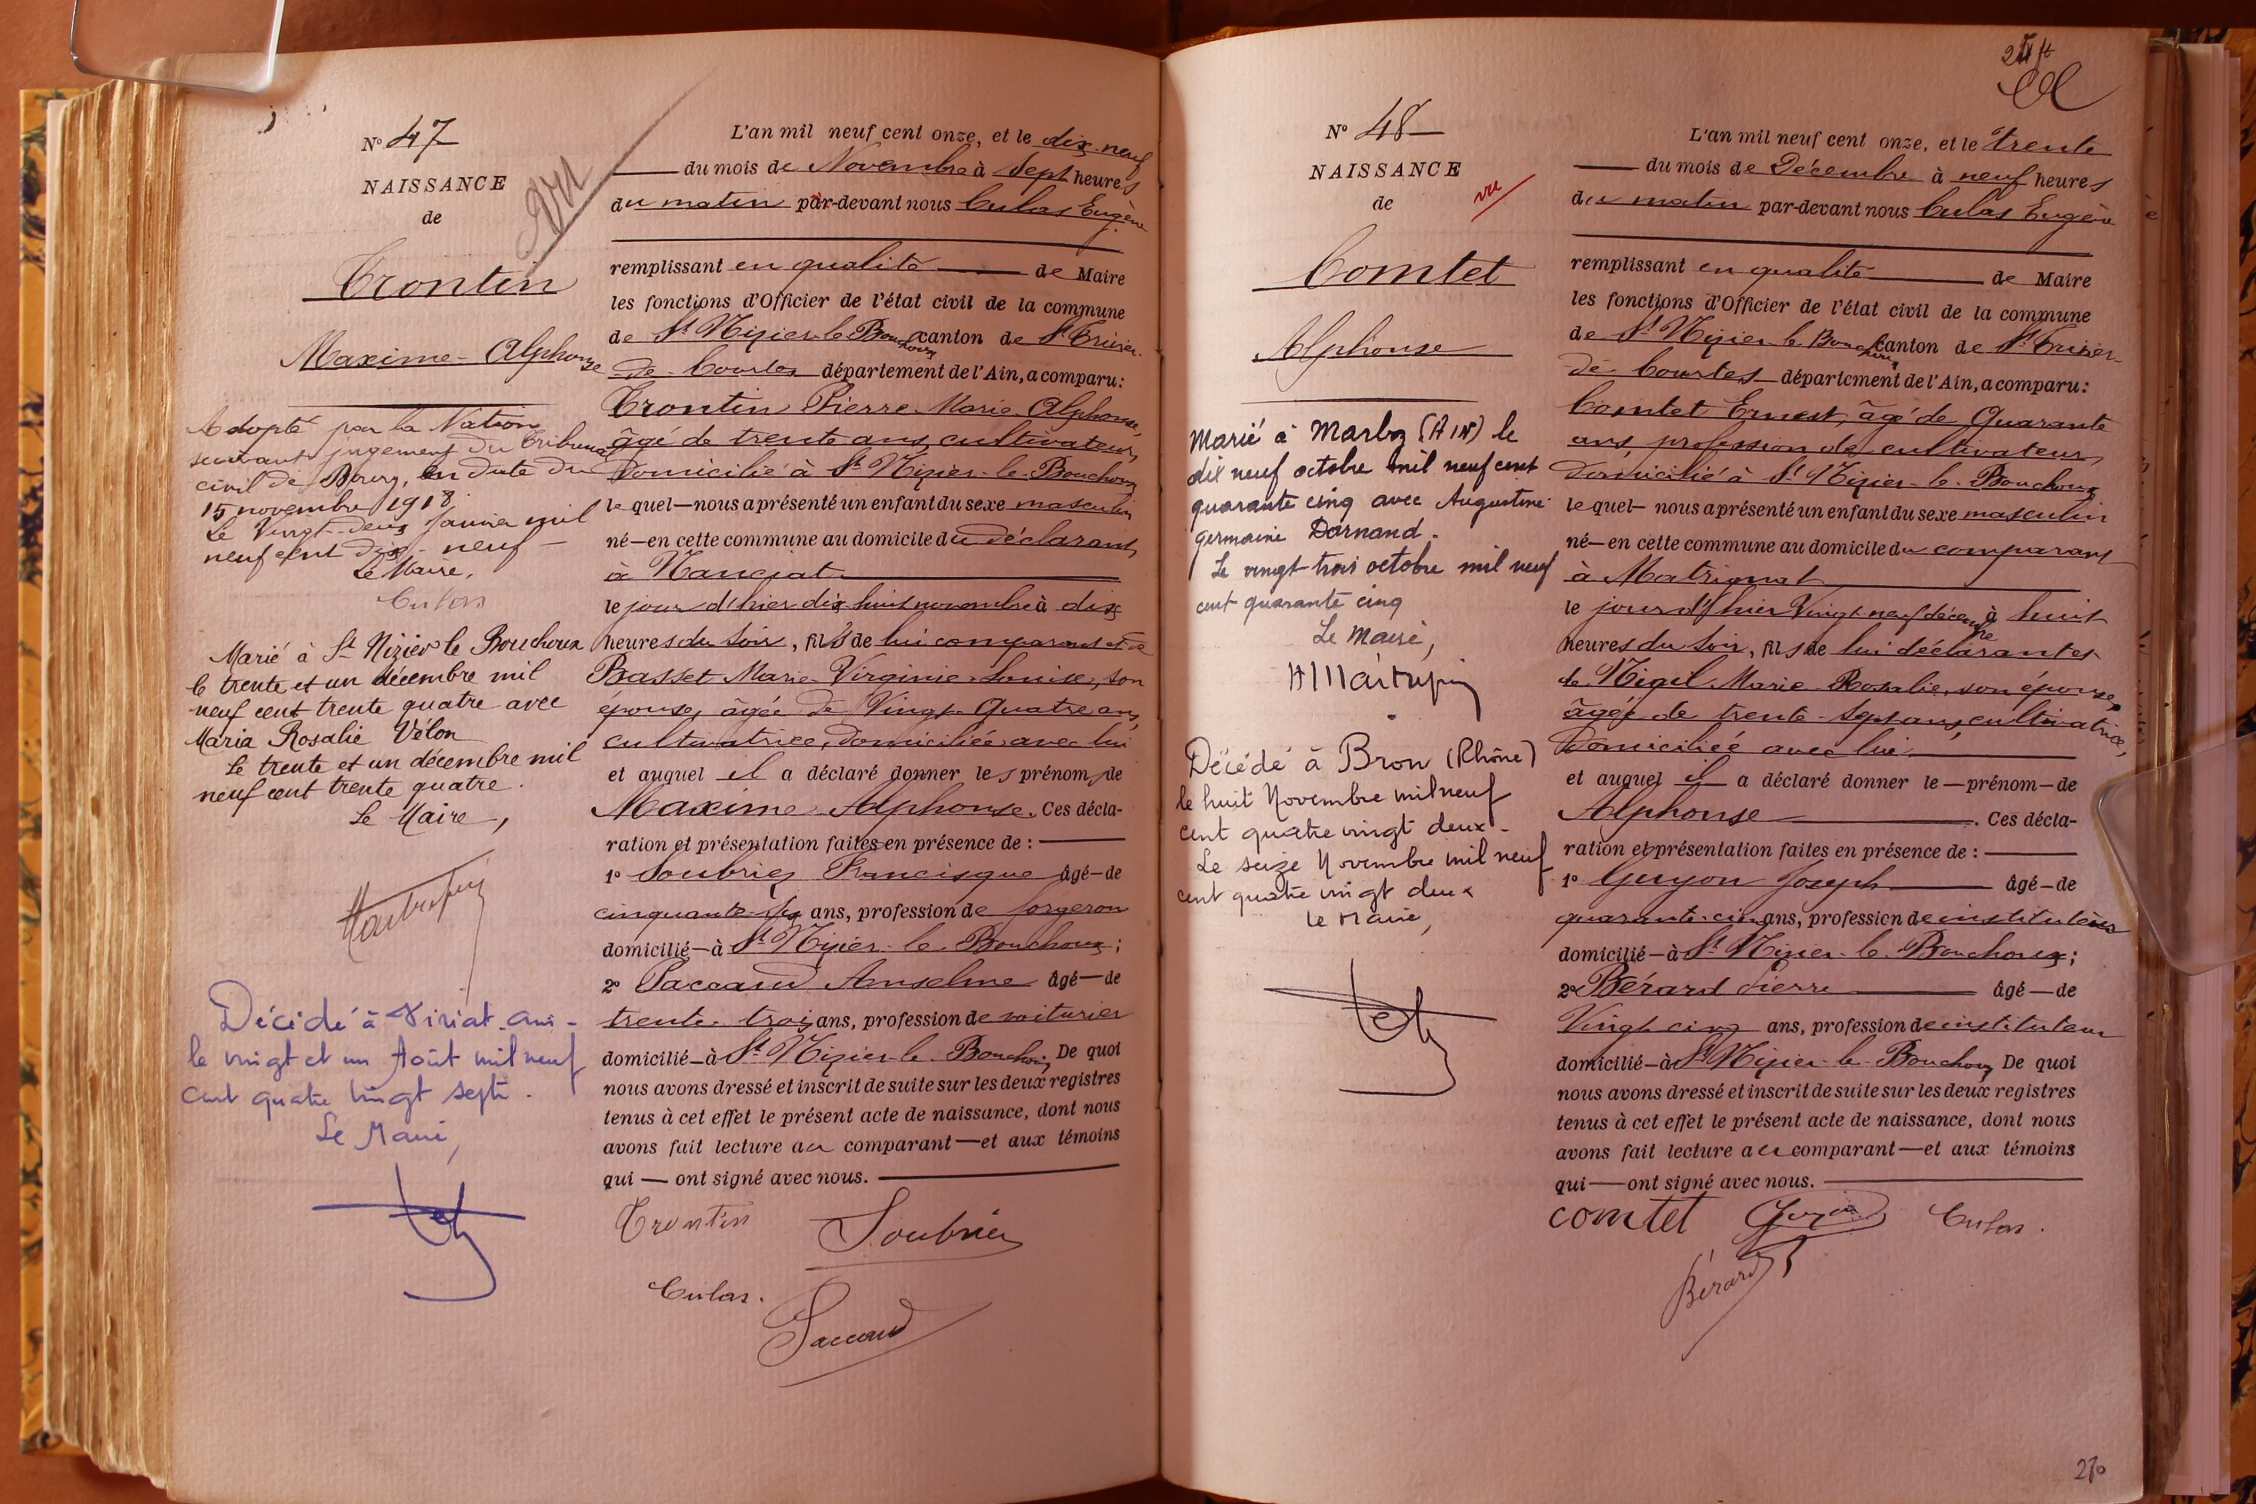 N° 47
NAISSANCE
de
Trontin
Maxime-Alphonse
Adopté par la Nation
suivant jugement du Tribunal
civil de Bourg, en date du
15 novembre 1918.
Le Vingt-deux Janvier mil
neuf cent dix-neuf
Le Maire,
Culas
Marié à St Nizier le Bouchoux
le trente et un décembre mil
neuf cent trente quatre avec
Maria Rosalie Vélon
Le trente et un décembre mil
neuf cent trente quatre.
Le Maire,
Décédé à Viriat. Ain -
le vingt et un Août mil neuf
cent quatre vingt sept.
Le Maire,
L'an mil neuf cent onze, et le dix-neuf
du mois de Novembre à sept heures
du matin par-devant nous Culas Eugène
remplissant en qualité de Maire
les fonctions d'Officier de l'état civil de la commune
de St Nizier-le-Bouchoux canton de St Trivier-
de-Courtes département de l'Ain, a comparu:
Trontin Pierre-Marie-Alphonse,
âgé de trente ans, cultivateur,
domicilié à St Nizier-le-Bouchoux
lequel—nous a présenté un enfant du sexe masculin
né—en cette commune au domicile du déclarant,
à
le jour d'hier dix huit novembre à dix
heures du soir, fils de lui comparant et de
Basset Marie-Virginie-Louise, son
épouse, âgée de Vingt-Quatre ans,
cultivatrice, domiciliée avec lui
et auquel il a déclaré donner les prénoms de
Maxime-Alphonse. Ces décla-
ration et présentation faites en présence de :
1° Soubrier Francisque âgé—de
cinquante-six ans, profession de forgeron
domicilié—à St Nizier-le-Bouchoux;
2° Paccaud Anselme âgé—de
trente-trois ans, profession de voiturier
domicilié—à St Nizier-le-Bouchoux De quoi
nous avons dressé et inscrit de suite sur les deux registres
tenus à cet effet le présent acte de naissance, dont nous
avons fait lecture au comparant—et aux témoins
qui — ont signé avec nous.
Trontin Soubrier
Culas.
Paccaud
N° 48
NAISSANCE
de
vu
Comtet
Alphonse
Marié à Marboz (AIN) le
dix neuf octobre mil neuf cent
quarante cinq avec Augustine
germaine Dornand.
Le vingt-trois octobre mil neuf
cent quarante cinq
Le Maire,
Décédé à Bron (Rhône)
le huit Novembre mil neuf
cent quatre vingt deux -
Le seize Novembre mil neuf
cent quatre vingt deux
Le Maire,
L'an mil neuf cent onze, et le trente
du mois de Décembre à neuf heures
du matin par-devant nous Culas Eugène
remplissant en qualité de Maire
les fonctions d'Officier de l'état civil de la commune
de St Nizier le Bouchoux canton de St Trivier-
de Courtes département de l'Ain, a comparu:
Comtet Ernest, âgé de Quarante
ans, profession de cultivateur,
domicilié à St Nizier-le-Bouchoux
lequel— nous a présenté un enfant du sexe masculin
né—en cette commune au domicile du comparant
à
le jour d'hier Vingt-neuf décembre à huit
heures du soir, fils de lui déclarant et
de Marie-Rosalie, son épouse,
âgée de trente-sept ans, cultivatrice,
domiciliée avec lui
et auquel il a déclaré donner le—prénom—de
Alphonse. Ces décla-
ration et présentation faites en présence de :
1° Guyon Joseph âgé—de
quarante-cinq ans, profession de instituteur
domicilié—à St Nizier-le-Bouchoux;
2° Bérard Pierre âgé—de
Vingt cinq ans, profession de instituteur
domicilié—à St Nizier-le-Bouchoux De quoi
nous avons dressé et inscrit de suite sur les deux registres
tenus à cet effet le présent acte de naissance, dont nous
avons fait lecture au comparant—et aux témoins
qui—ont signé avec nous.
comtet Guyon Culas.
Bérard
270